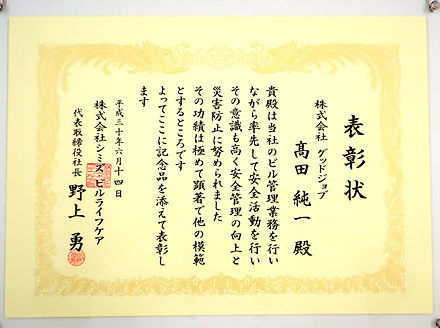 表彰状
株式会社 グッドジョブ
髙田 純一 殿
貴殿は当社のビル管理業務を行い
ながら率先して安全活動を行い
その意識も高く安全管理の向上と
災害防止に努められました
その功績は極めて顕著で他の模範
とするところです
よってここに記念品を添えて表彰し
ます
平成三十年六月十四日
株式会社シミズ・ビルライフケア
代表取締役社長 野上 勇